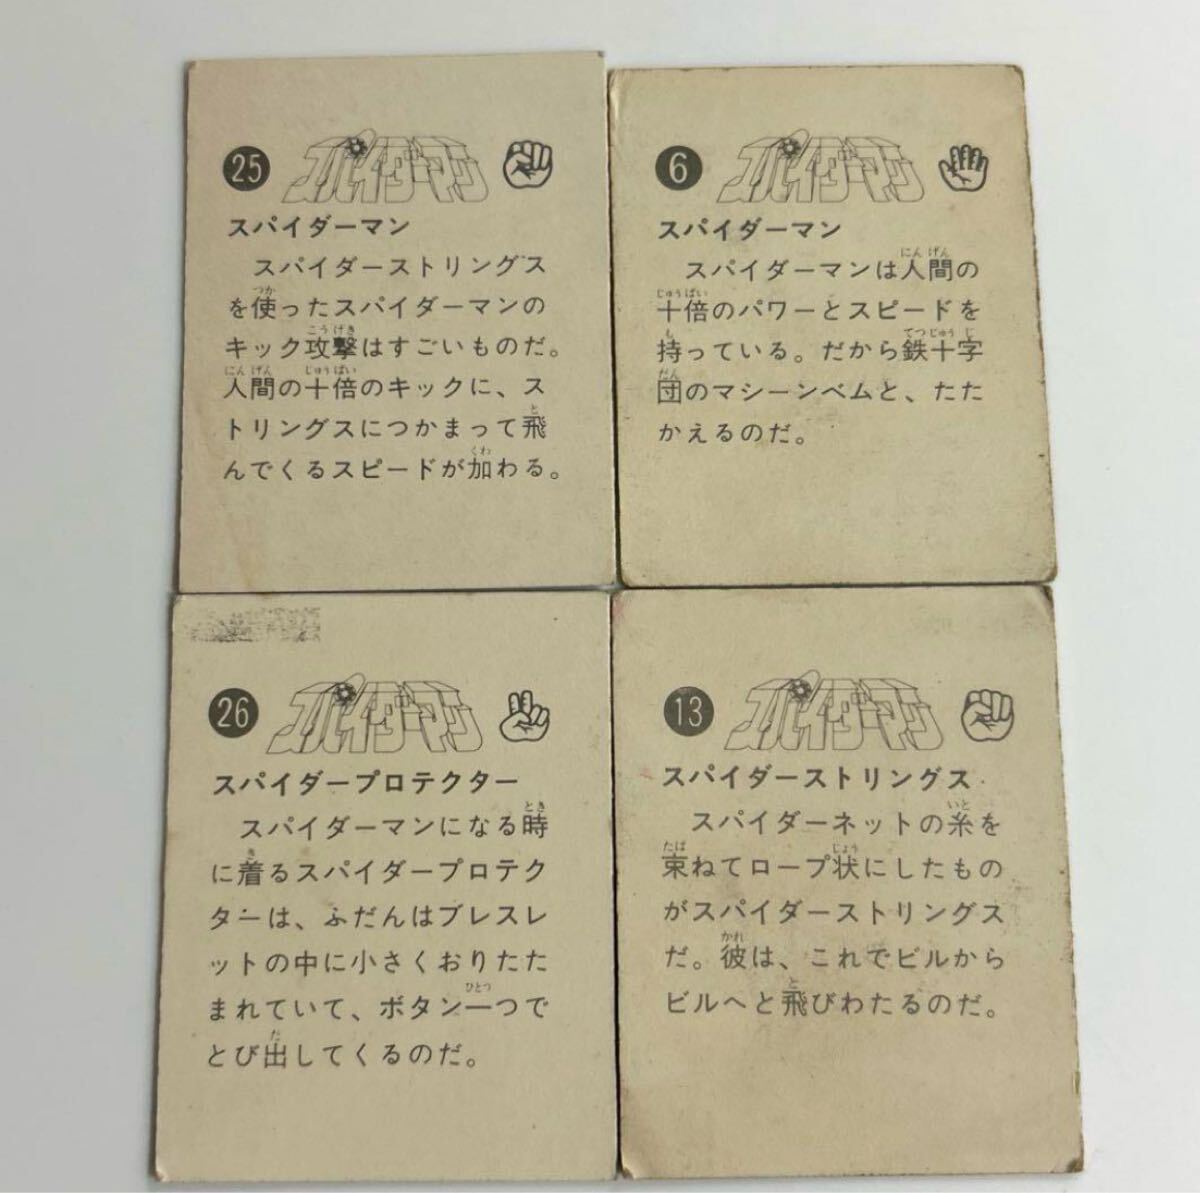 25
スパイダーマン
スパイダーマン
スパイダーストリングス
つか
を使ったスパイダーマンの
こうげき
キック攻撃はすごいものだ。
にんげん じゅうばい
人間の十倍のキックに、ス
と
トリングスにつかまって飛
くわ
んでくるスピードが加わる。
6
スパイダーマン
スパイダーマン
にんげん
スパイダーマンは人間の
じゅうばい
十倍のパワーとスピードを
も てつじゅうじ
持っている。だから鉄十字
だん
団のマシーンベムと、たた
かえるのだ。
26
スパイダーマン
スパイダープロテクター
とき
スパイダーマンになる時
き
に着るスパイダープロテク
ターは、ふだんはブレスレ
ットの中に小さくおりたた
ひとつ
まれていて、ボタン一つで
だ
とび出してくるのだ。
13
スパイダーマン
スパイダーストリングス
いと
スパイダーネットの糸を
たば じょう
束ねてロープ状にしたもの
がスパイダーストリングス
かれ
だ。彼は、これでビルから
と
ビルへと飛びわたるのだ。